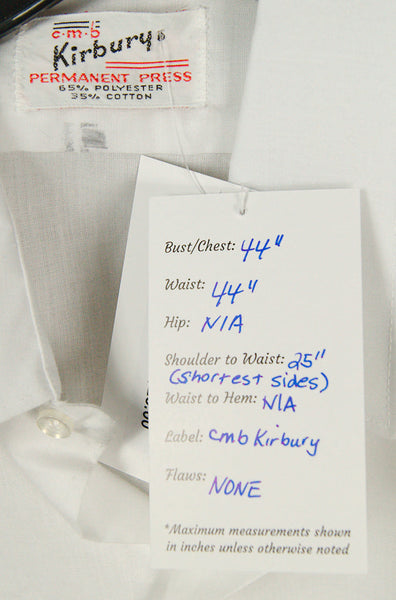 c·m·b
Kirbury®
PERMANENT PRESS
65% POLYESTER
35% COTTON
Bust/Chest: 44"
Waist: 44"
Hip: N/A
Shoulder to Waist: 25"
(shortest sides)
Waist to Hem: N/A
Label: cmb Kirbury
Flaws: NONE
*Maximum measurements shown
in inches unless otherwise noted